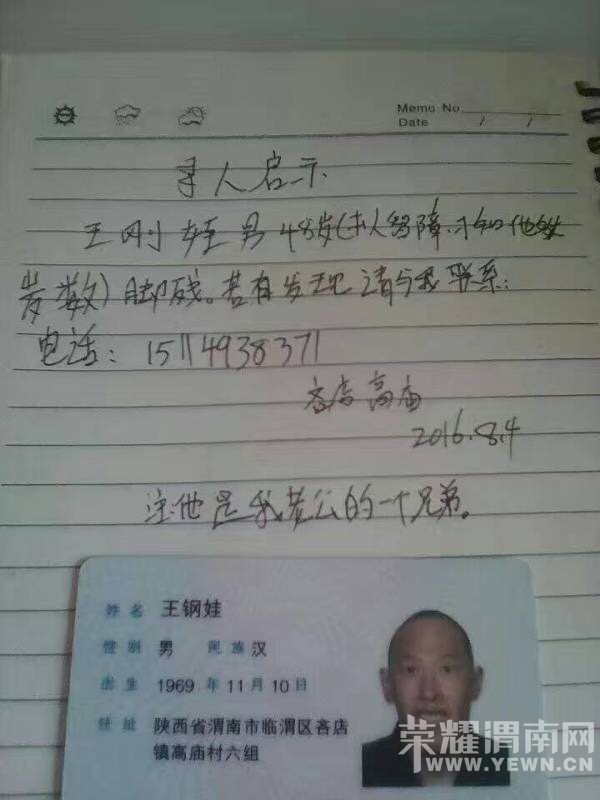 Memo No.
Date / /
寻人启示
王刚娃 男 48岁(本人智障.不知他的
岁数) 脚残。若有发现请与我联系:
电话: 15114938371
吝店高庙
2016.8.4
注:他是我老公的一个兄弟。
姓名 王钢娃
性别 男 民族 汉
出生 1969 年 11 月 10 日
住址 陕西省渭南市临渭区吝店
镇高庙村六组
荣耀渭南网
WWW.YEWN.CN